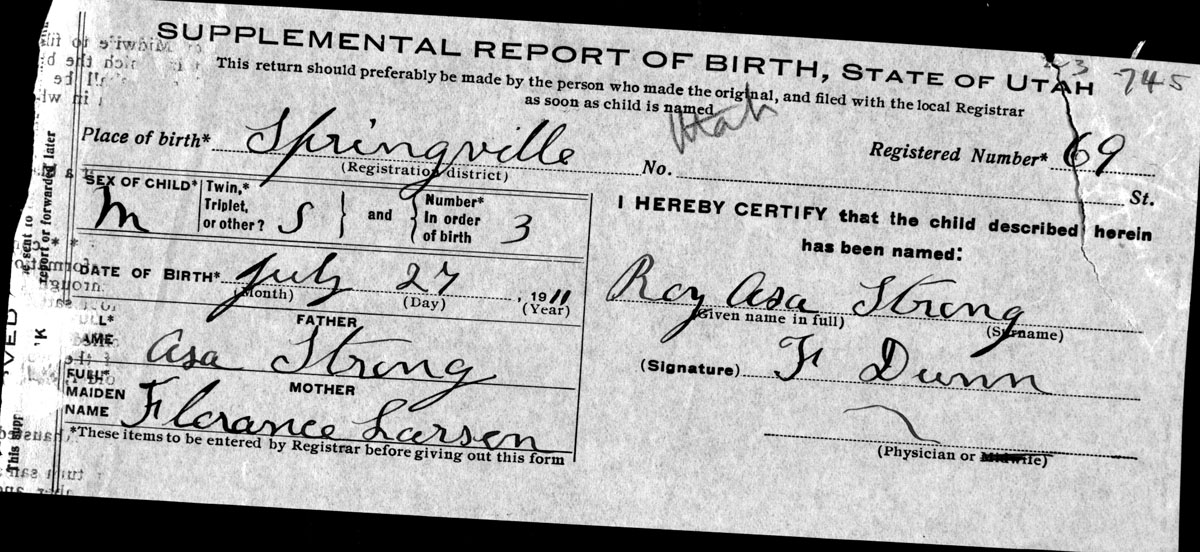 SUPPLEMENTAL REPORT OF BIRTH, STATE OF UTAH
745
This return should preferably be made by the person who made the original, and filed with the local Registrar
as soon as child is named
Utah
Place of birth* Springville
(Registration district)
No.
St.
Registered Number* 69
SEX OF CHILD* M
Twin,* Triplet, or other? S
and
Number* In order of birth 3
DATE OF BIRTH* July 27, 1911
(Month) (Day) (Year)
FATHER
FULL* NAME Asa Strong
MOTHER
FULL* MAIDEN NAME Florance Larsen
*These items to be entered by Registrar before giving out this form
I HEREBY CERTIFY that the child described herein
has been named:
Roy Asa Strong
(Given name in full) (Surname)
(Signature) F Dunn
(Physician or Midwife)
report or forwarded later
This supp